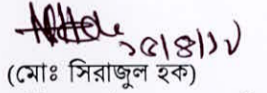 ২৫/৪/১৮
(মোঃ সিরাজুল হক)